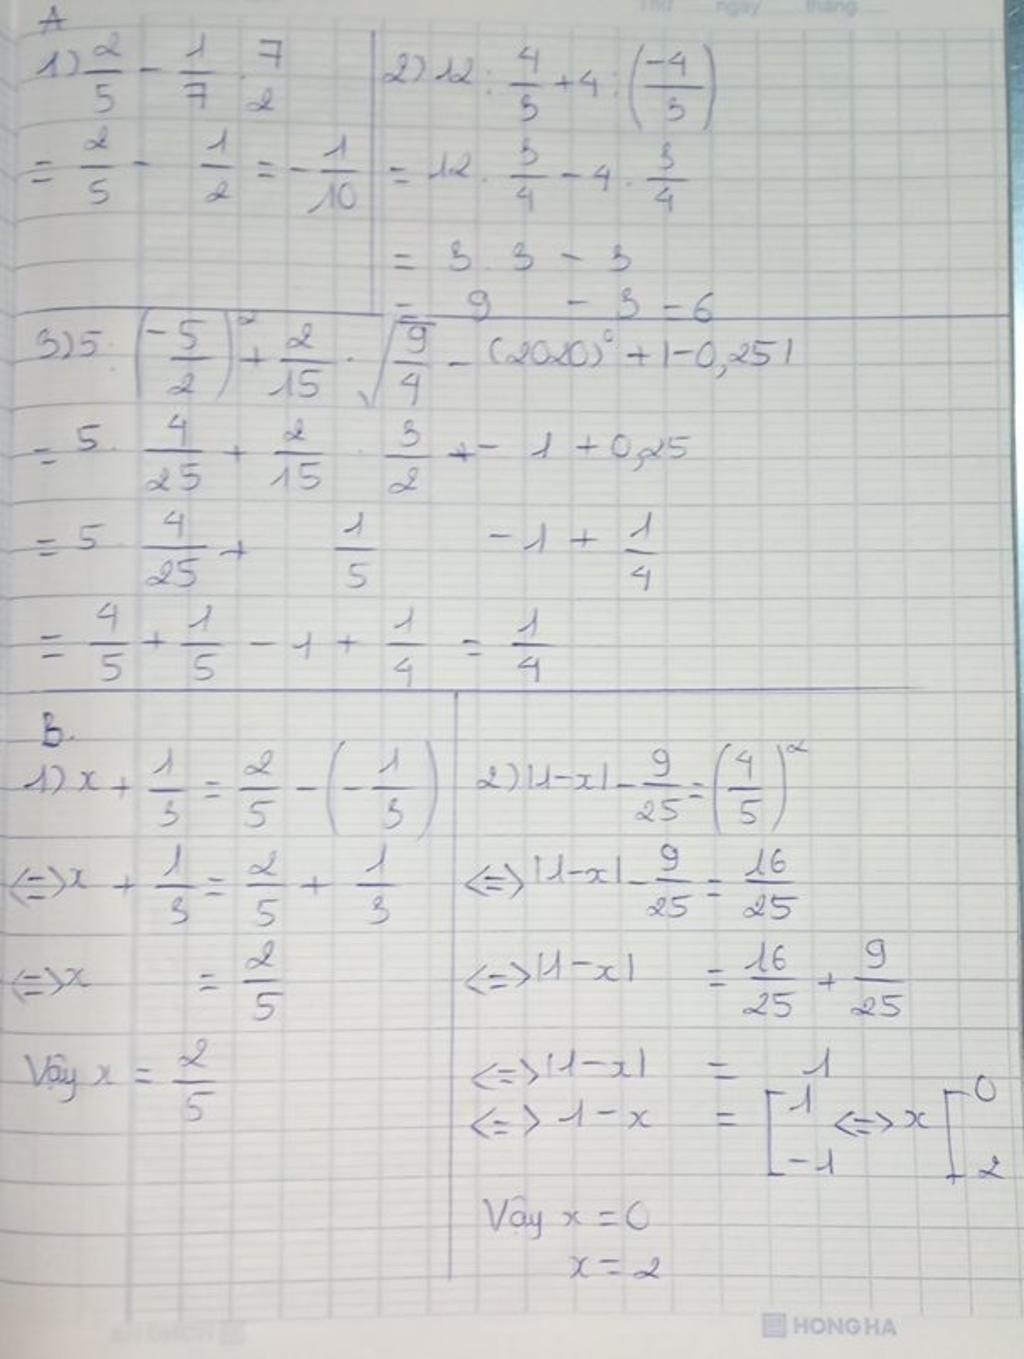 Thứ ngày tháng
A
1) 2/5 - 1/7 . 7/2
= 2/5 - 1/2 = -1/10
2) 12 : 4/3 + 4 : (-4/3)
= 12 . 3/4 - 4 . 3/4
= 3 . 3 - 3
= 9 - 3 = 6
3) 5 : (-5/2)² + 2/15 . √(9/4) - (2020)⁰ + |-0,25|
= 5 . 4/25 + 2/15 . 3/2 + - 1 + 0,25
= 5 . 4/25 + 1/5 - 1 + 1/4
= 4/5 + 1/5 - 1 + 1/4 = 1/4
B.
1) x + 1/3 = 2/5 - (-1/3)
<=> x + 1/3 = 2/5 + 1/3
<=> x = 2/5
Vậy x = 2/5
2) |1-x| - 9/25 = (4/5)²
<=> |1-x| - 9/25 = 16/25
<=> |1-x| = 16/25 + 9/25
<=> |1-x| = 1
<=> 1-x = [1 -1 <=> x [0 2
Vậy x = 0
x = 2
HONG HA